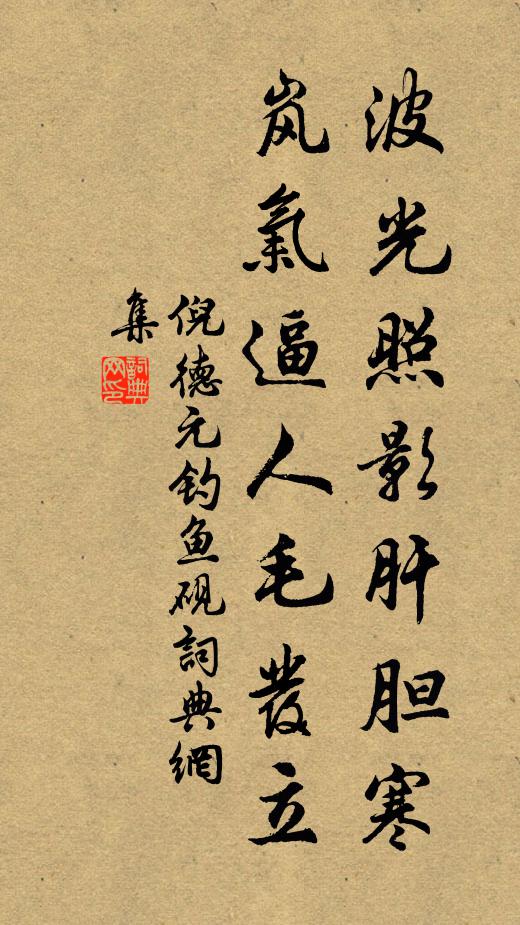 波光照影肝胆寒
岚氣逼人毛發立
倪德元钓鱼砚詞典網
集
詞典
网印